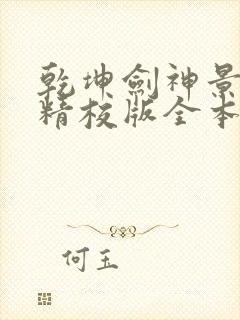 乾坤劍神景
精校版全本
何玉